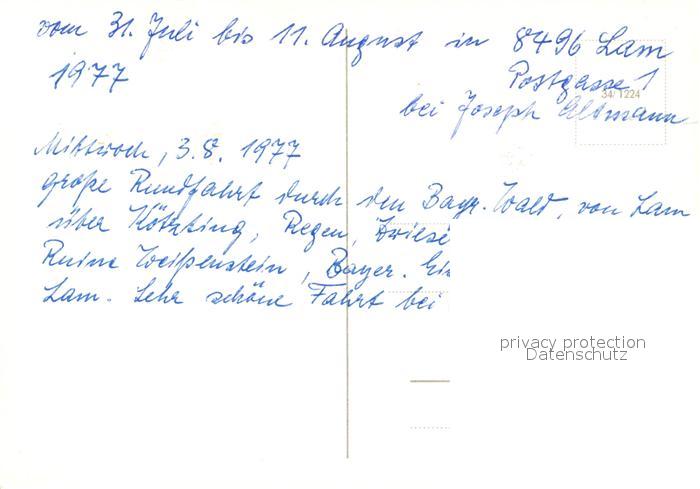 vom 31. Juli bis 11. August in 8496 Lam
1977 Postgasse 1
34/1224
bei Joseph Altmann
Mittwoch, 3.8. 1977
große Rundfahrt durch den Bayr. Wald, von Lam
über Kötzting, Regen, Zwiese
Ruine Weißenstein, Bayer. Ei
Lam. Sehr schöne Fahrt bei
privacy protection
Datenschutz